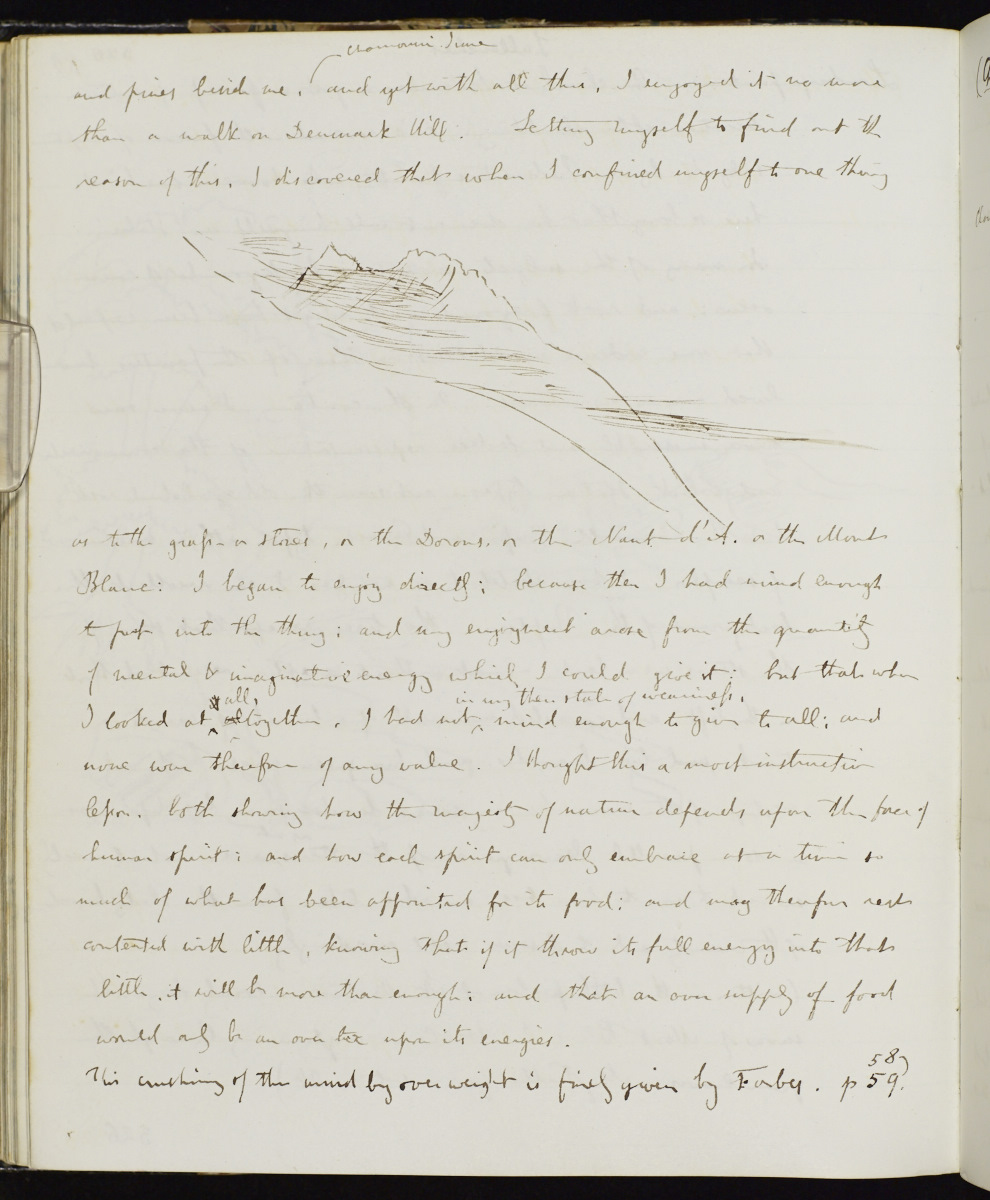 Chamouni June
and pines beside me, and yet with all this, I enjoyed it no more
than a walk on Denmark Hill. Setting myself to find out the
reason of this, I discovered that when I confined myself to one thing
as to the grass or stones, or the Dorons. or the Nant d'A. or the Mont
Blanc: I began to enjoy directly; because then I had mind enough
to put into the thing; and my enjoyment arose from the quantity
of mental & imaginative energy which I could give it: but that when
all, in my then state of weariness,
I looked at together, I had not mind enough to give to all; and
none were therefore of any value. I thought this a most instructive
lesson. both showing how the majesty of nature depends upon the force of
human spirit; and how each spirit can only embrace at a time so
much of what has been appointed for its food; and may therefore rest
contented with little, knowing that if it throw its full energy into that
little, it will be more than enough: and that an over supply of food
would only be an over tax upon its energies.
This crushing of the mind by overweight is finely given by Forbes. p 58, 59.